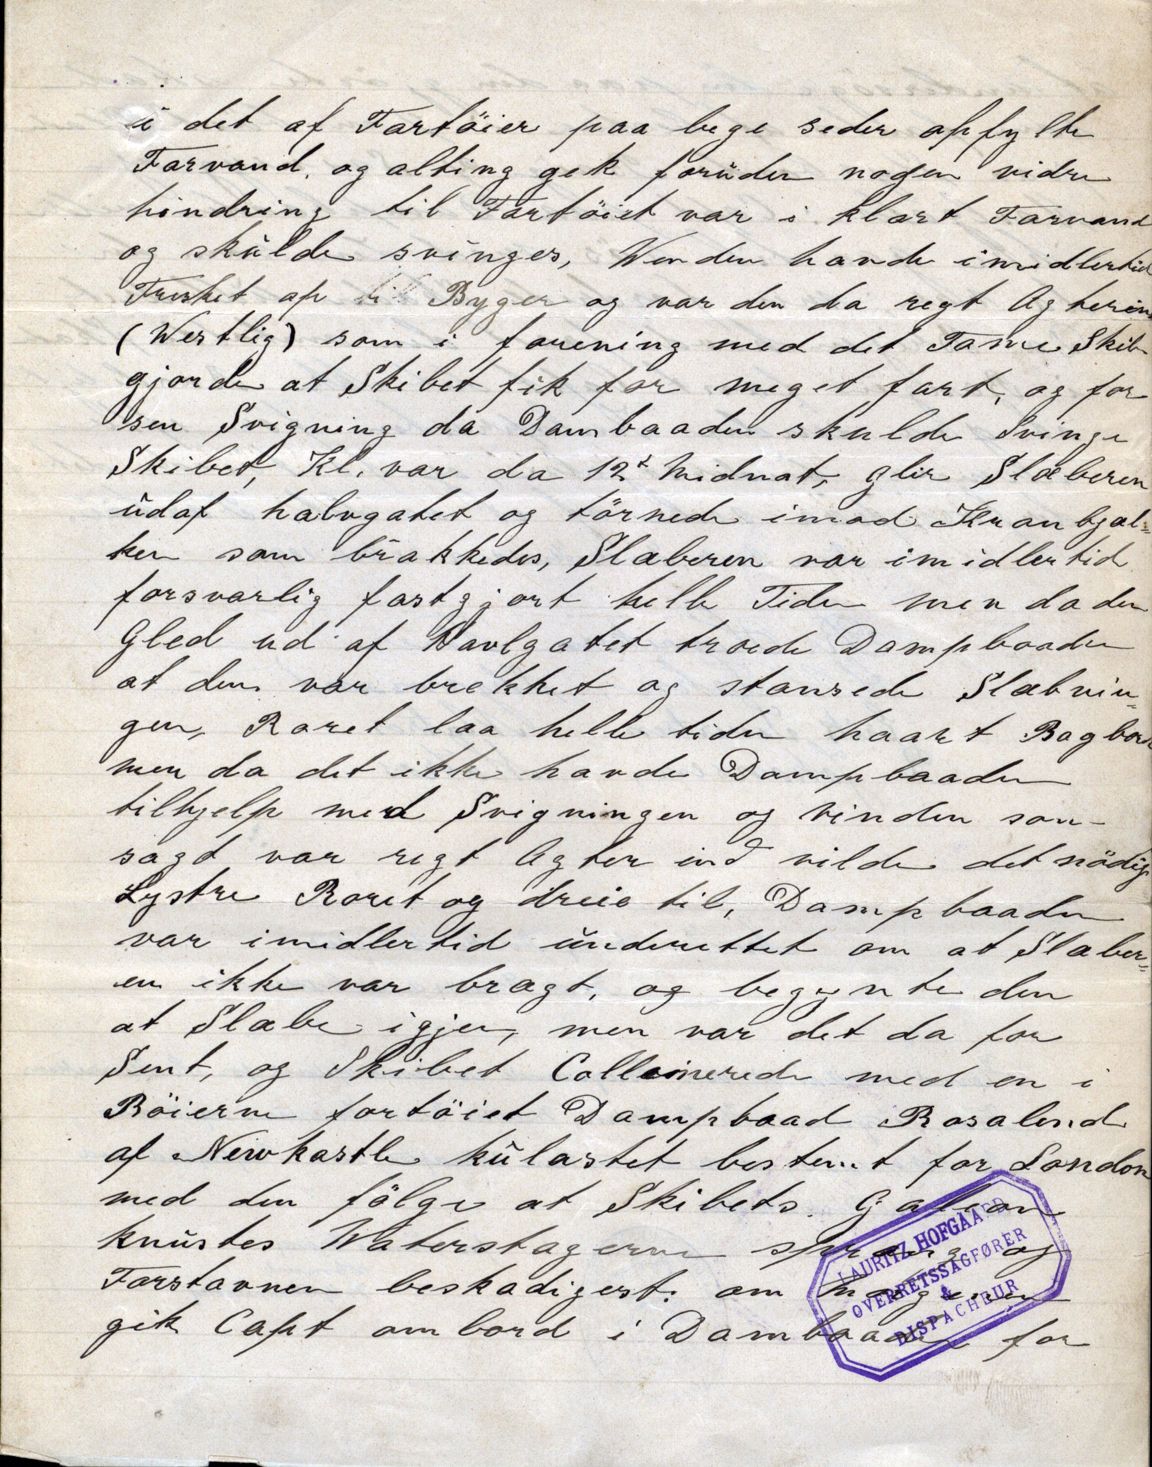 i det af Fartöier paa bege seder opfylte
Farvand, og alting gek foruden nogen vidre
hindring til Fartöiet var i klart Farvand
og skulde svinges, Venden havde imidlertid
Fresket op til Byger og var den da regt Agterind
(Westlig) som i forening med det Tome Skib
gjorde at Skibet fik for meget fart, og for
sen Svigning da Dambaaden skulde Svinge
Skibet, Kl. var da 12 Midnat, glir Slæberen
udaf halvgatet og törnede imod Kranbjæl=
ken som brækkedes, Slæberen var imidlertid
forsvarlig fastgjort helle Tiden men da den
Gled ud af Havlgatet troede Dampbaaden
at den var brekket og stansede Slæbnin=
gen, Roret laa helle tiden haart Bagbor
men da det ikke havde Dampbaaden
tilhjelp med Svigningen og vinden som
sagt var regt Agter ind vilde det nödig
Lystre Roret og dreie til, Dampbaaden
var imidlertid underettet om at Slæber=
en ikke var bragt, og begynte den
at Slæbe igjen, men var det da for
Sent, og Skibet Colleinerede med en i
Böierne fortöiet Dampbaad Rosalind
af Newkastle kulastet bestemt for London
med den fölge at Skibets Galion
knustes Waterstagerne sprang og
Forstavnen beskadigest. om morgenen
gik Capt ombord i Dambaaden for
LAURITZ HOFGAARD
OVERRETSSAGFØRER
&
DISPACHEUR